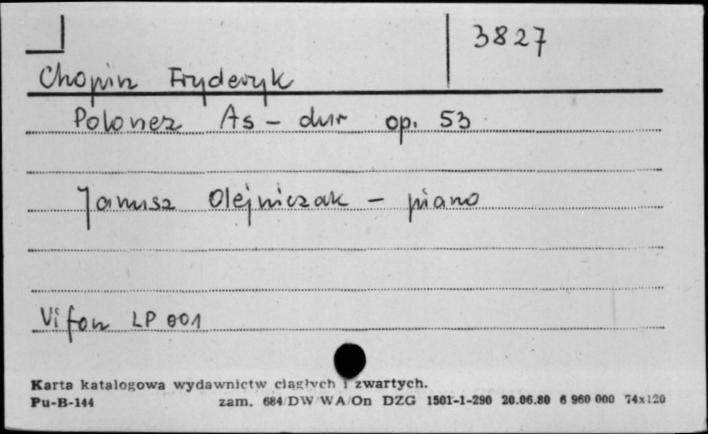 3827
Chopin Fryderyk
Polonez As - dur op. 53
Janusz Olejniczak - piano
Vifon LP 001
Karta katalogowa wydawnictw ciągłych i zwartych.
Pu-B-144 zam. 684/DW WA/On DZG 1501-1-290 20.06.80 6 960 000 74x120